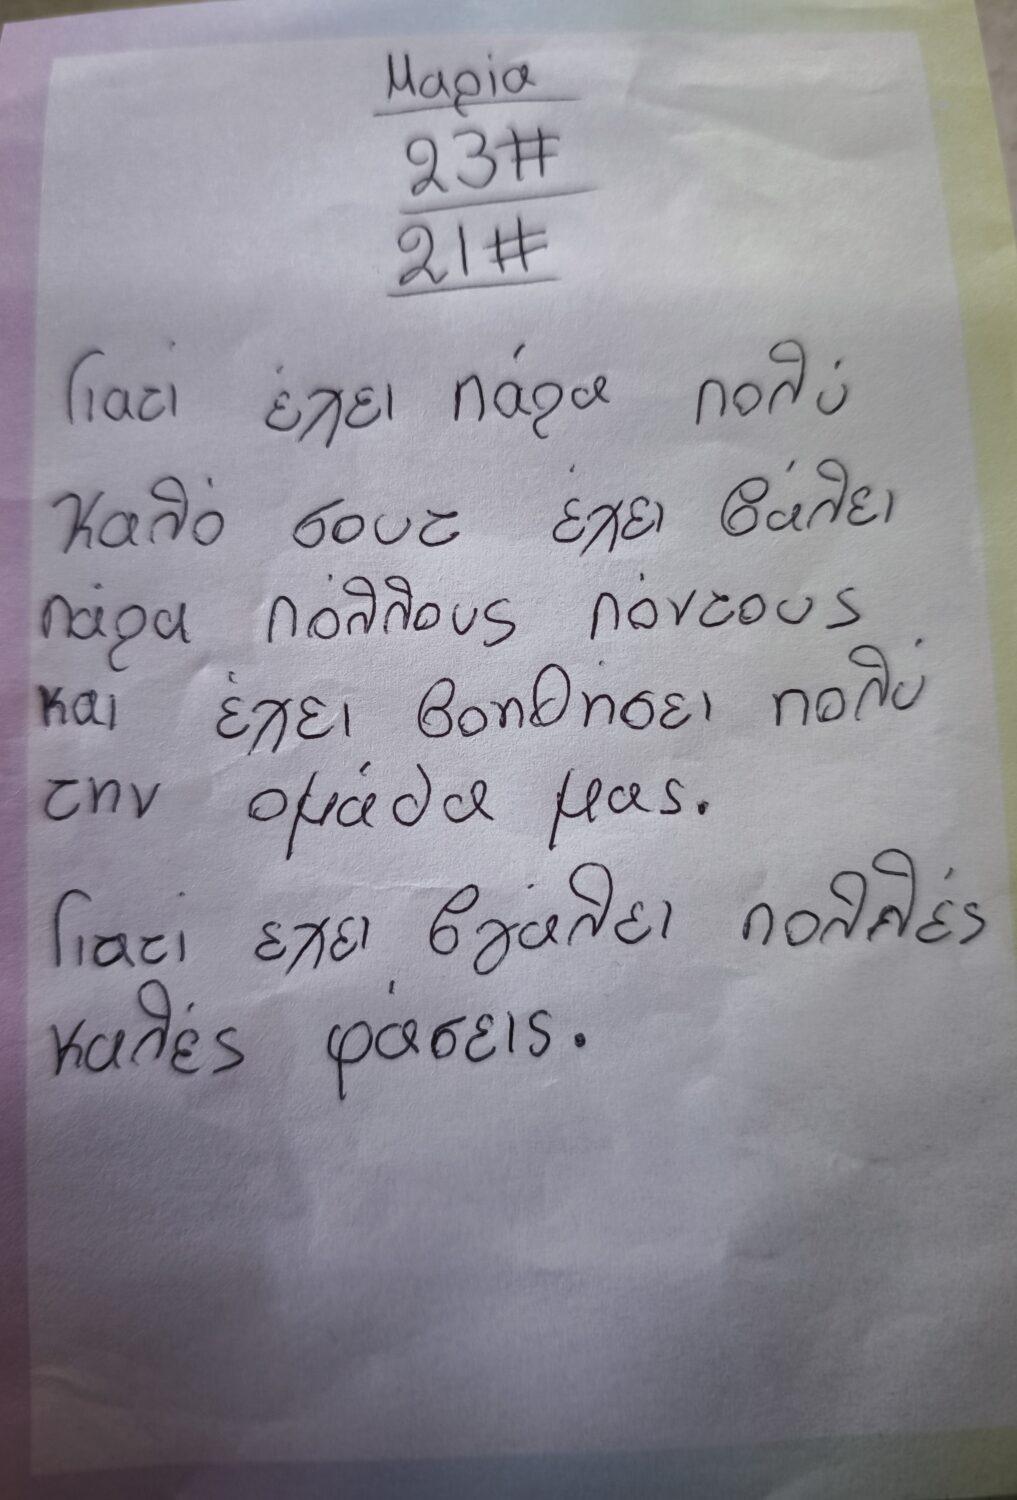 Μαρία
23#
21#
Γιατί έχει πάρα πολύ
καλό σουτ έχει βάλει
πάρα πόλλους πόντους
και έχει βοηθήσει πολύ
την ομάδα μας.
Γιατί εχει βγάλει πολλές
καλές φάσεις.